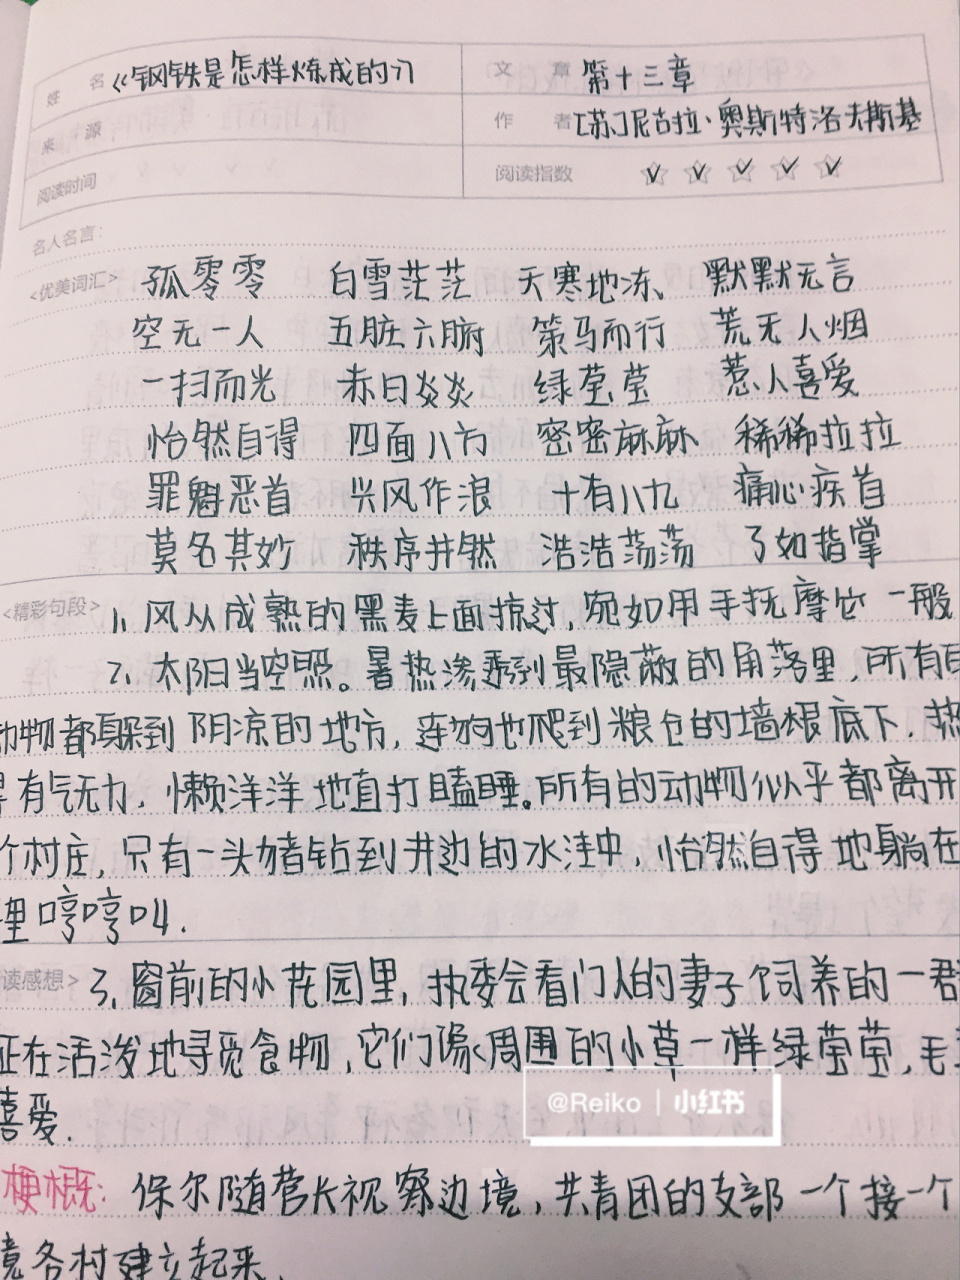 姓 名 《钢铁是怎样炼成的》 文 章 第十三章
来 源 作 者 [苏]尼古拉·奥斯特洛夫斯基
阅读时间 阅读指数
名人名言:
<优美词汇> 孤零零 白雪茫茫 天寒地冻、 默默无言
空无一人 五脏六腑 策马而行 荒无人烟
一扫而光 赤日炎炎 绿莹莹 惹人喜爱
怡然自得 四面八方 密密麻麻 稀稀拉拉
罪魁恶首 兴风作浪 十有八九 痛心疾首
莫名其妙 秩序井然 浩浩荡荡 了如指掌
<精彩句段> 1、风从成熟的黑麦上面掠过,宛如用手抚摩它一般
2、太阳当空照。暑热渗透到最隐蔽的角落里,所有
动物都躲到阴凉的地方,连狗也爬到粮仓的墙根底下,热
得有气无力,懒洋洋地直打瞌睡。所有的动物似乎都离开
个村庄,只有一头猪钻到井边的水洼中,怡然自得地躺在
里哼哼叫.
读感想> 3、窗前的小花园里,执委会看门人的妻子饲养的一群
正在活泼地寻觅食物,它们像周围的小草一样绿莹莹,毛
喜爱.
@Reiko | 小红书
梗概: 保尔随营长视察边境,共青团的支部一个接一个
境各村建立起来.